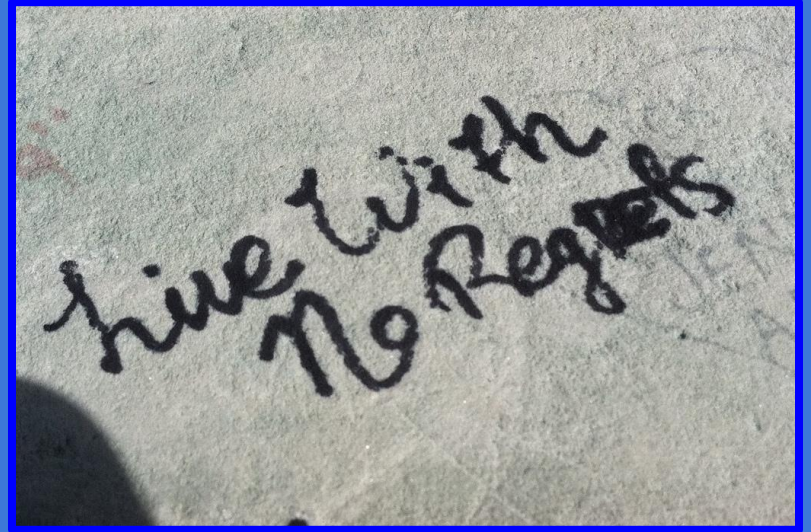 Live With
No Regrets
JEN